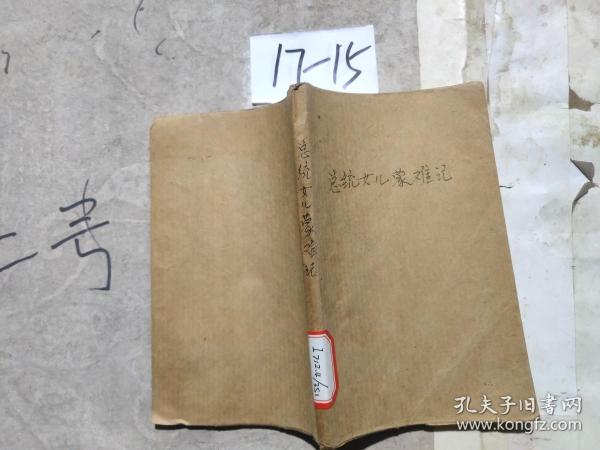 17-15
总统女儿蒙难记
总统女儿蒙难记
二号
I712.4/351
孔夫子旧书网
www.kongfz.com